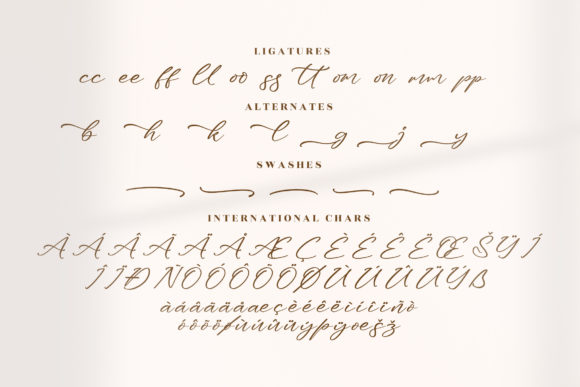 LIGATURES
cc ee ff ll oo ss tt om on mm pp
ALTERNATES
b h k l g j y
SWASHES
INTERNATIONAL CHARS
ÀÁÂÃÄÅÆÇÈÉÊËŒŠŸÍ
ÎÏÐÑÒÓÔÕÖØÙÚÛÜÝß
àáâãäåæçèéêëìíîïñò
óôõöøùúûüýþÿœšž